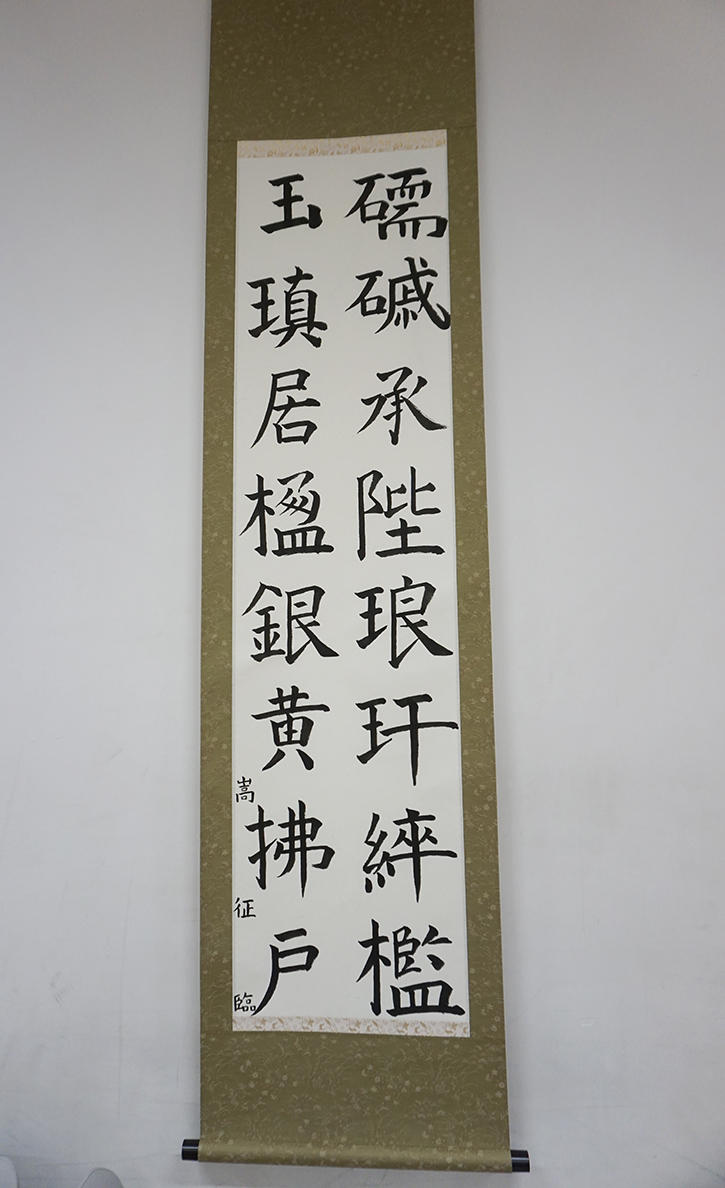 礝磩承陛琅玕綷檻
玉瑱居楹銀黄拂戸
嵩征臨